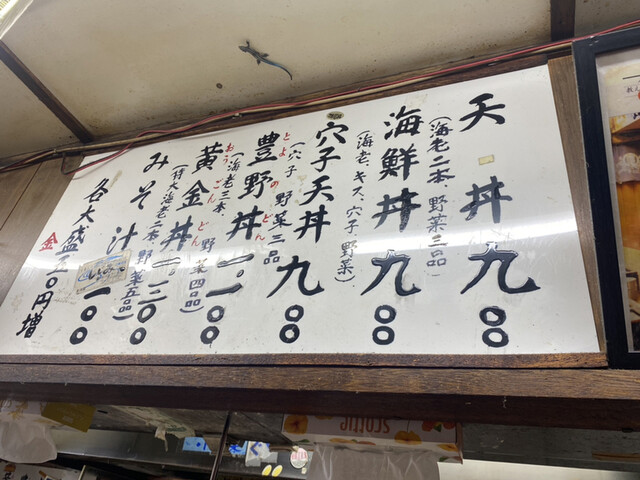 天丼 九〇〇
(海老二本、野菜三品)
海鮮丼 九〇〇
(海老、キス、穴子、野菜)
穴子天丼 九〇〇
(穴子 野菜三品
とよのどん
豊野丼 一、〇〇〇
(海老三本、野菜四品)
おうごんどん
黄金丼 一、三〇〇
(特大海老二本、野菜五品)
みそ汁 一〇〇
各大盛 五〇円増
金
SCOTTIE